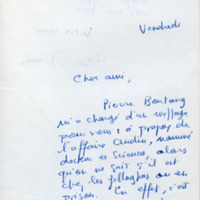 Vendredi
Cher ami,
Pierre Boutang
m'a chargé d'un message
pour vous : à propos de
l'affaire Audin, nommé
docteur ès Sciences, alors
qu'on ne sait s'il est
chez les fellaghas ou en
prison. En effet, c'est